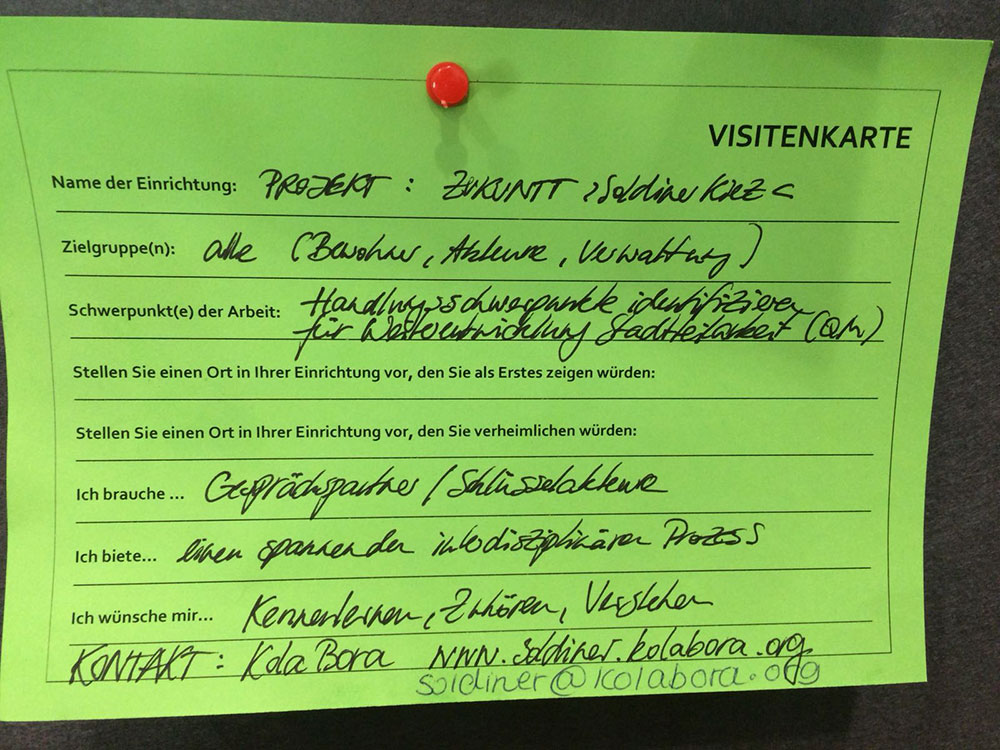 VISITENKARTE
Name der Einrichtung: PROJEKT : ZUKUNFT >Soldiner Kiez<
Zielgruppe(n): alle (Bewohner, Akteure, Verwaltung)
Schwerpunkt(e) der Arbeit: Handlungsschwerpunkte identifizieren
für Weiterentwicklung Stadtteilarbeit (QM)
Stellen Sie einen Ort in Ihrer Einrichtung vor, den Sie als Erstes zeigen würden:
Stellen Sie einen Ort in Ihrer Einrichtung vor, den Sie verheimlichen würden:
Ich brauche ... Gesprächspartner / Schlüsselakteure
Ich biete... einen spannenden interdisziplinären Prozess
Ich wünsche mir... Kennenlernen, Zuhören, Verstehen
KONTAKT : KolaBora www.soldiner.kolabora.org
soldiner@kolabora.org